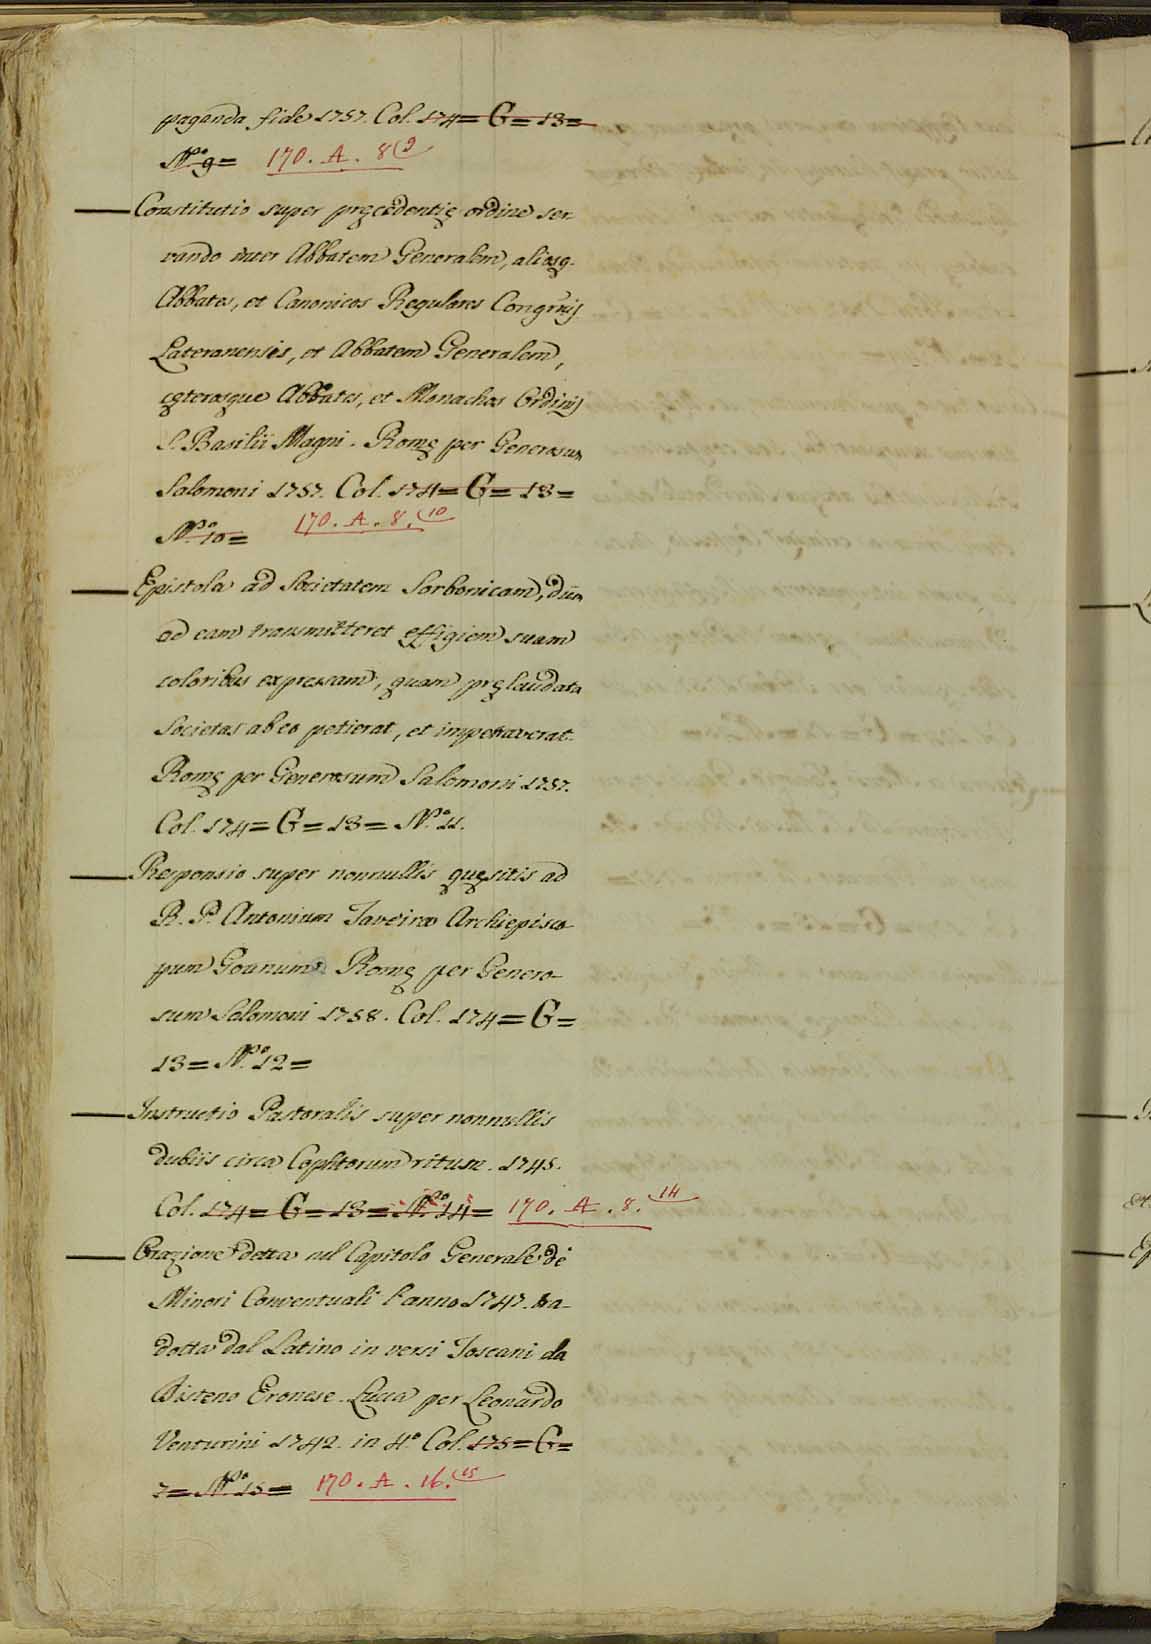 paganda fide 1757. Col. 174= G= 13=
N.º 9= 170. A. 8(9
Constitutio super pręcedentię ordine ser-
vando inter Abbatem Generalem, aliosq.
Abbates, et Canonicos Regulares Congñis
Lateranensis, et Abbatem Generalem,
cęterosque Abbates, et Monachos Ordinis
S. Basilii Magni. Romę per Generosum
Salomoni 1757. Col. 174= G= 13=
N.º 10= 170. A. 8.(10
Epistola ad Societatem Sorbonicam, dum
ad eam transmitteret effigiem suam
coloribus expressam, quam pręlaudata
Societas ab eo petierat, et impetraverat.
Romę per Generosum Salomoni 1757.
Col. 174= G= 13= N.º 11.
Responsio super nonnullis quęsitis ad
R. P. Antonium Taveira Archiepisco-
pum Goanum. Romę per Genero-
sum Salomoni 1758. Col. 174= G=
13= N.º 12=
Instructio Pastoralis super nonnullis
dubiis circa Cophtorum ritum. 1745.
Col. 174= G= 13= N.º 14= 170. A. 8.(14
Orazione detta nel Capitolo Generale de
Minori Conventuali l'anno 1747. tra-
dotta dal Latino in versi Toscani da
Disteno Eronese. Lucca per Leonardo
Venturini 1742. in 4.º Col. 175= G=
7= N.º 15= 170. A. 16.(15